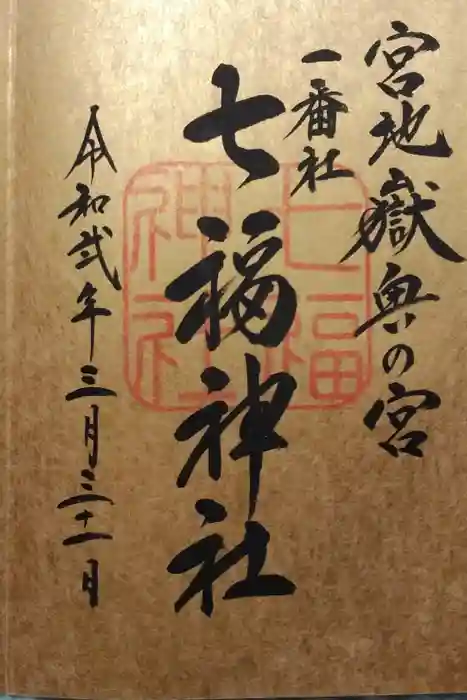 宮地嶽奥の宮
一番社
七福神社
七福
神社
令和弐年三月三十一日